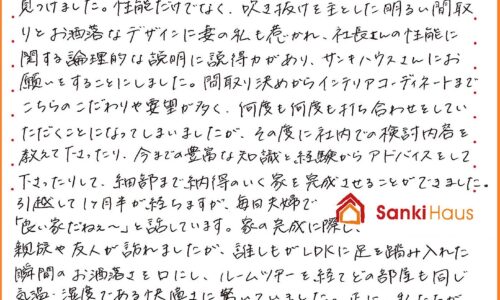 見つけました。性能だけでなく、吹き抜けを主とした明るい間取
りとお洒落なデザインに妻の私も惹かれ、社長さんの性能に
関する論理的な説明に説得力があり、サンキハウスさんにお
願いをすることにしました。間取り決めからインテリアコーディネートまで
こちらのこだわりや要望が多く、何度も何度も打ち合わせをしてい
ただくことになってしまいましたが、その度に社内での検討内容を
教えて下さったり、今までの豊富な知識と経験からアドバイスをして
下さったりして、細部まで納得のいく家を完成させることができました。
引越して1ヶ月半が経ちますが、毎日夫婦で
「良い家だねぇ〜」と話しています。家の完成に際し、
SankiHaus
親族や友人が訪れましたが、誰しもがLDKに足を踏み入れた
瞬間のお洒落さを口にし、ルームツアーを経てどの部屋も同じ
気温・湿度である快適さに驚いていました。正に、私たちが